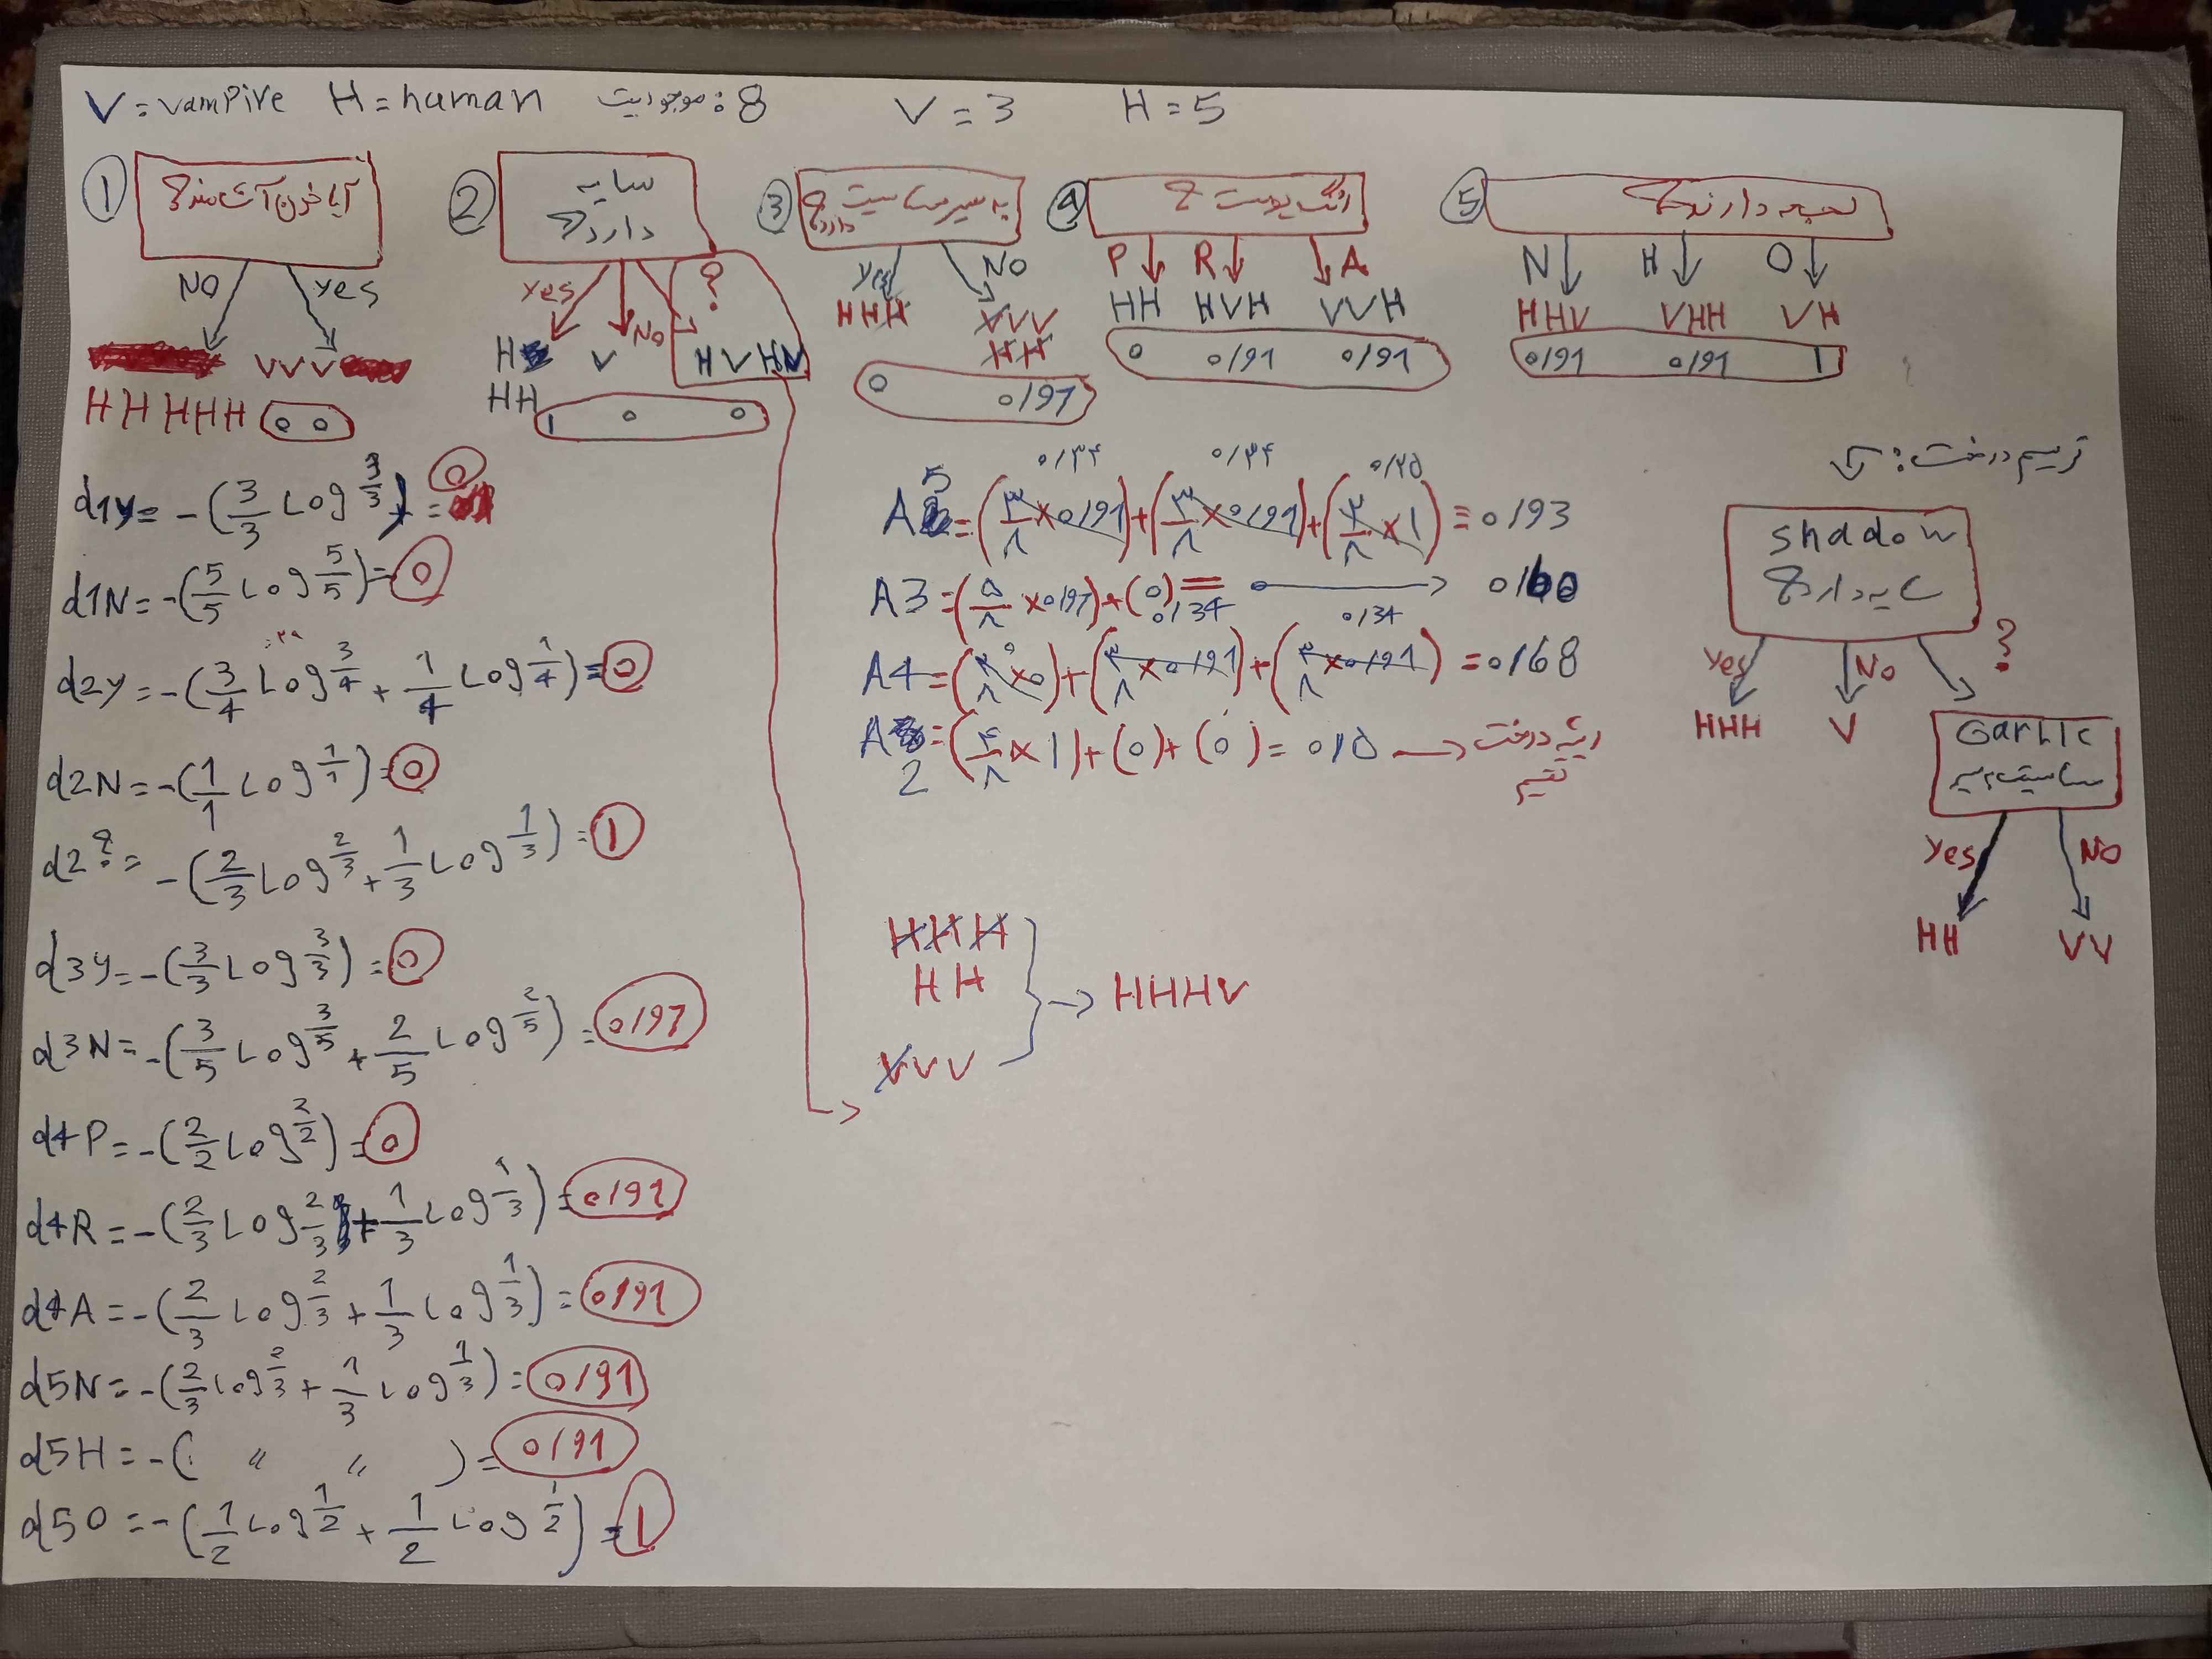 V = vampire H = human موجودیت : 8 V = 3 H = 5
① آیا خون آشامند؟
NO yes
VVV
HHHHH 0 0
② سایه دارد؟
yes No ?
H V HVHV
HH
1 0 0
③ به سیر حساسیت دارد؟
yes NO
HHH VVV
HH
0 0/97
④ رنگ پوست؟
P R A
HH HVH VVH
0 0/91 0/91
⑤ لهجه دارند؟
N H O
HHV VHH VH
0/91 0/91 1
d1y = -(3/3 Log 3/3) = 0
d1N = -(5/5 Log 5/5) = 0
d2y = -(3/4 Log 3/4 + 1/4 Log 1/4) = 0
d2N = -(1/1 Log 1/1) = 0
d2? = -(2/3 Log 2/3 + 1/3 Log 1/3) = 1
d3y = -(3/3 Log 3/3) = 0
d3N = -(3/5 Log 3/5 + 2/5 Log 2/5) = 0/97
d4P = -(2/2 Log 2/2) = 0
d4R = -(2/3 Log 2/3 + 1/3 Log 1/3) = 0/91
d4A = -(2/3 Log 2/3 + 1/3 Log 1/3) = 0/91
d5N = -(2/3 Log 2/3 + 1/3 Log 1/3) = 0/91
d5H = -( " " ) = 0/91
d5O = -(1/2 Log 1/2 + 1/2 Log 1/2) = 1
0/34 0/34 0/25
A5 = (۳/۸ × 0/91) + (۳/۸ × 0/91) + (۲/۸ × 1) = 0/93
A3 = (۵/۸ × 0/97) + (0) = 0/60
0/34 0/34
A4 = (۲/۸ × 0) + (۳/۸ × 0/91) + (۳/۸ × 0/91) = 0/68
A2 = (۴/۸ × 1) + (0) + (0) = 0/۵ → ریشه درخت
HHH
HH → HHHV
VVV
ترسیم درخت :
shadow
سایه دارد؟
Yes No ?
HHH V
Garlic
حساسیت به سیر
Yes NO
HH VV